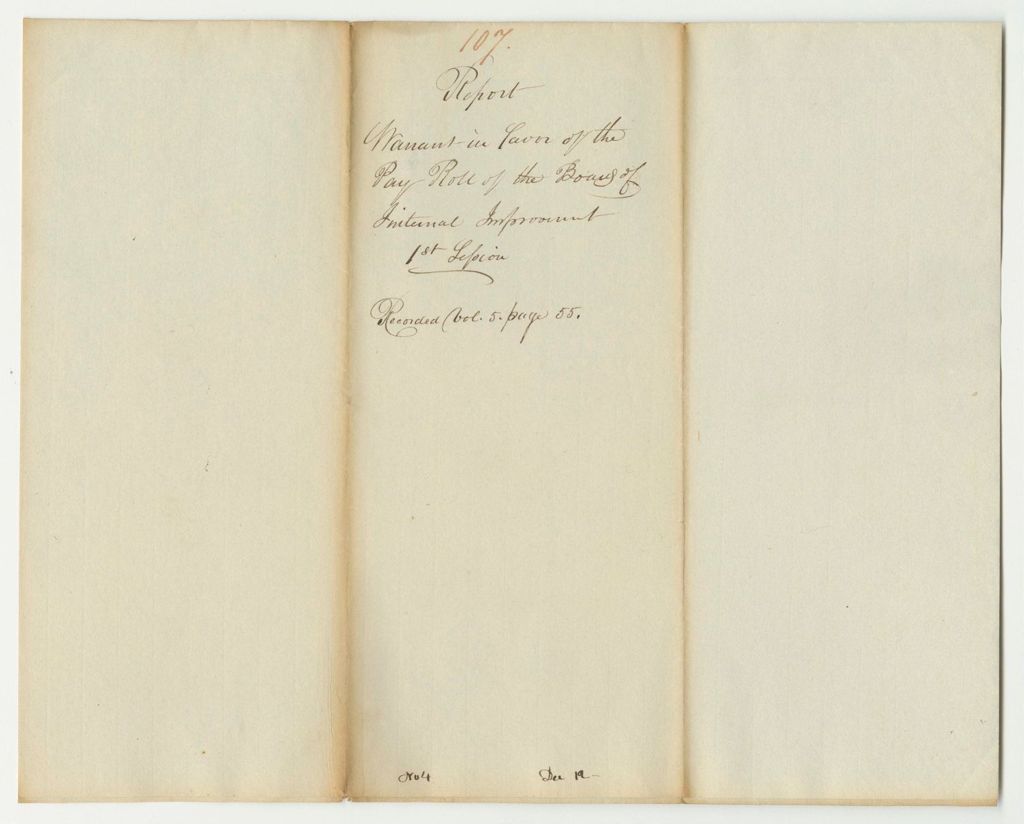 107.
Report
Warrant in favor of the
Pay Roll of the Board of
Internal Improvement
1st Session
Recorded Vol. 5. page 55.
No 4 Dec 19